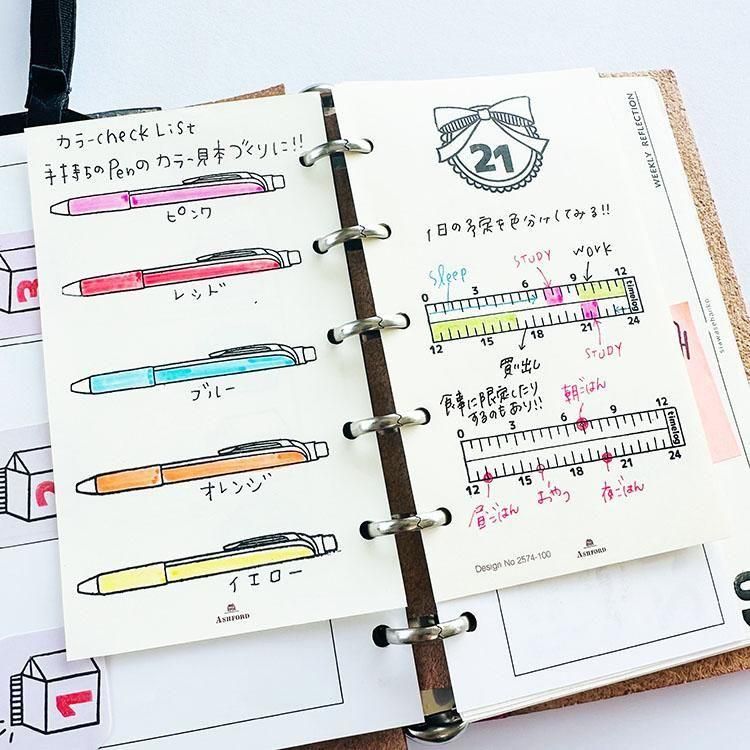 カラーcheck List
手持ちのPenのカラー見本づくりに!!
ピンク
レッド
ブルー
オレンジ
イエロー
ASHFORD
21
1日の予定を色分けしてみる!!
sleep
STUDY
WORK
0 3 6 9 12
timelog
12 15 18 21 24
買い出し
STUDY
食事に限定したり
するのもあり!!
朝ごはん
0 3 6 9 12
timelog
12 15 18 21 24
昼ごはん
おやつ
夜ごはん
Design No 2574-100
ASHFORD
WEEKLY REFLECTION
siawasehanko
3
2
1